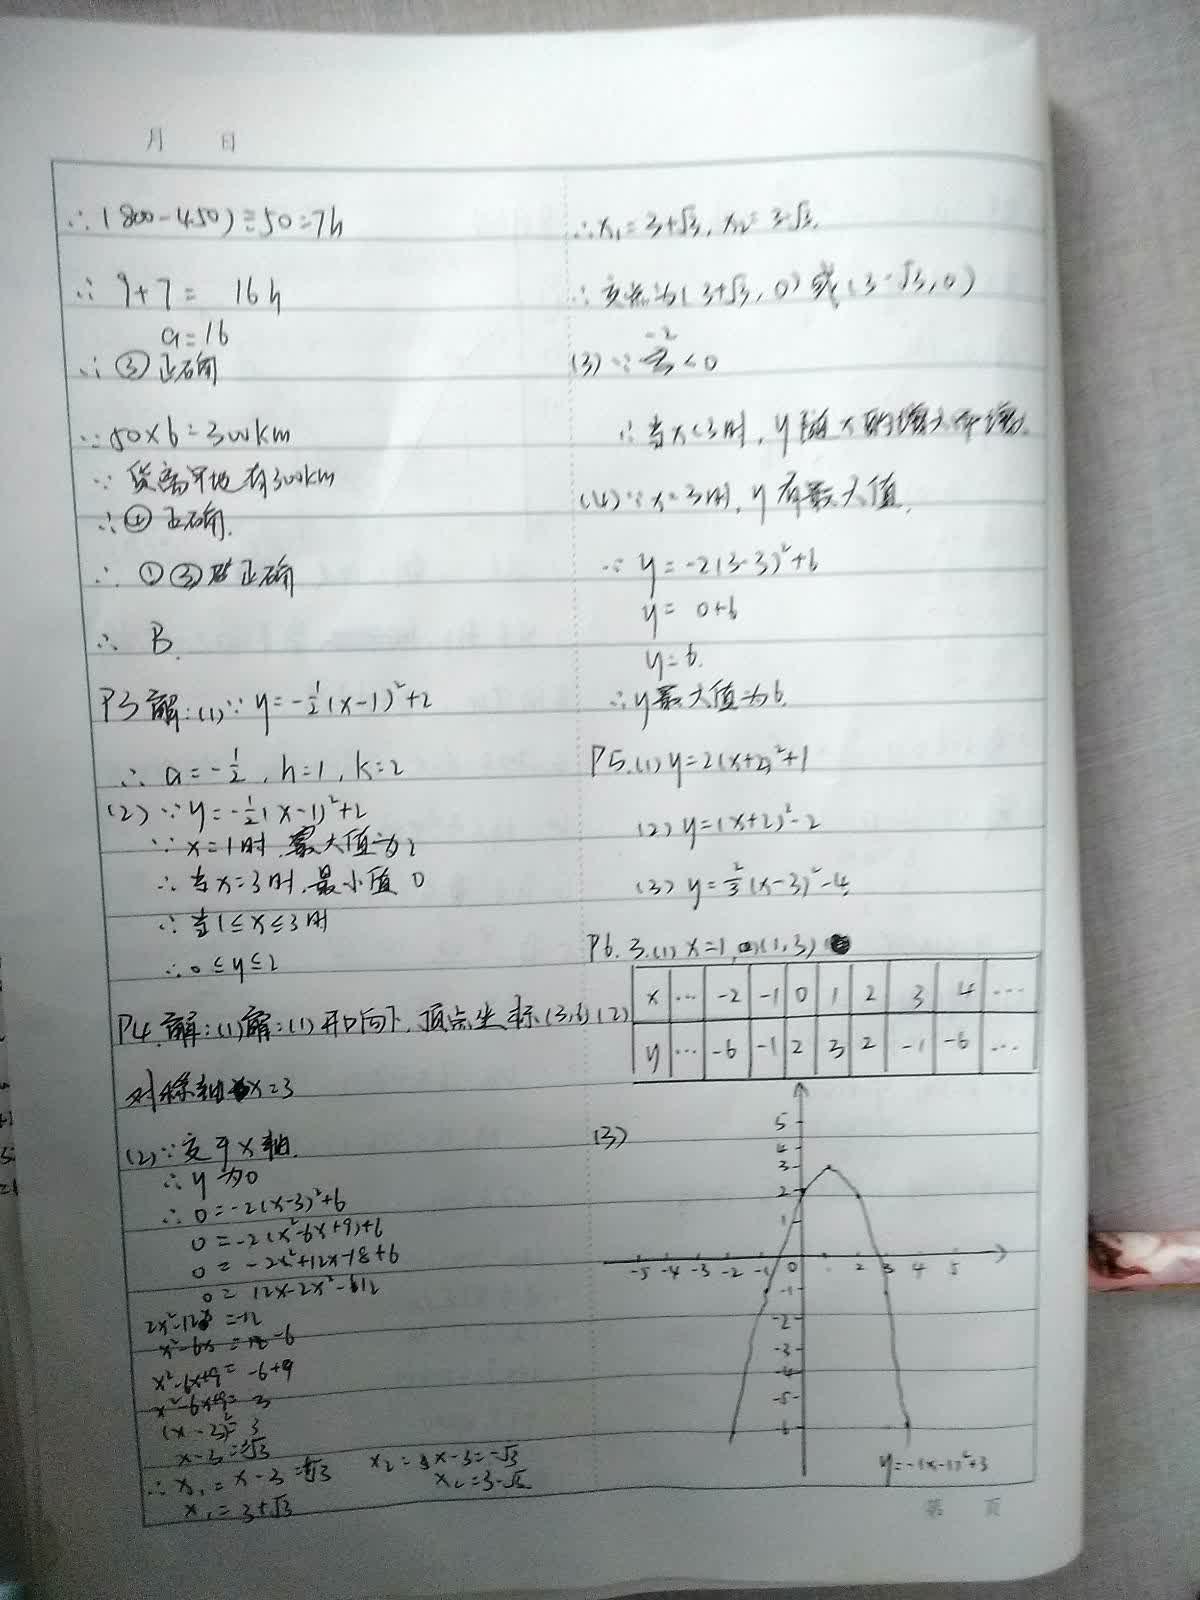 月 日
∴(800-450)÷50=7h
∴ 9+7= 16h
a=16
∴ ③正确
∵50×6=300km
∵ 货离甲地有300km
∴④正确.
∴ ①③④正确
∴ B.
P3解:(1)∵ y=-1/2(x-1)²+2
∴ a=-1/2, h=1, k=2
(2)∵y=-1/2(x-1)²+2
∵x=1时,最大值为2
∴当x=3时,最小值0
∴当1≤x≤3时
∴0≤y≤2
P4.解:(1)解:(1)开口向下,顶点坐标(3,6)
对称轴x=3
(2)∵交于x轴.
∴y为0
∴0=-2(x-3)²+6
0=-2(x²-6x+9)+6
0=-2x²+12x-18+6
0= 12x-2x²-12
2x²-12x=-12
x²-6x=-6
x²-6x+9=-6+9
x²-6x+9=3
(x-3)²=3
x-3=±√3
∴x₁=x-3=√3 x₂=x-3=-√3
x₁=3+√3 x₂=3-√3
∴x₁=3+√3, x₂=3-√3.
∴交点为(3+√3,0)或(3-√3,0)
(3)∵-2<0
∴当x<3时,y随x的增大而增大.
(4)∵x=3时,y有最大值.
∵y=-2(3-3)²+6
y= 0+6
y=6.
∴y最大值为6.
P5.(1)y=2(x+2)²+1
(2)y=(x+2)²-2
(3)y=2/3(x-3)²-4
P6.3.(1)x=1,(1,3)
(2)
x … -2 -1 0 1 2 3 4 …
y … -6 -1 2 3 2 -1 -6 …
(3)
5
4
3
2
1
-5 -4 -3 -2 -1 0 2 3 4 5
-1
-2
-3
-4
-5
-6
y=-(x-1)²+3
第 页